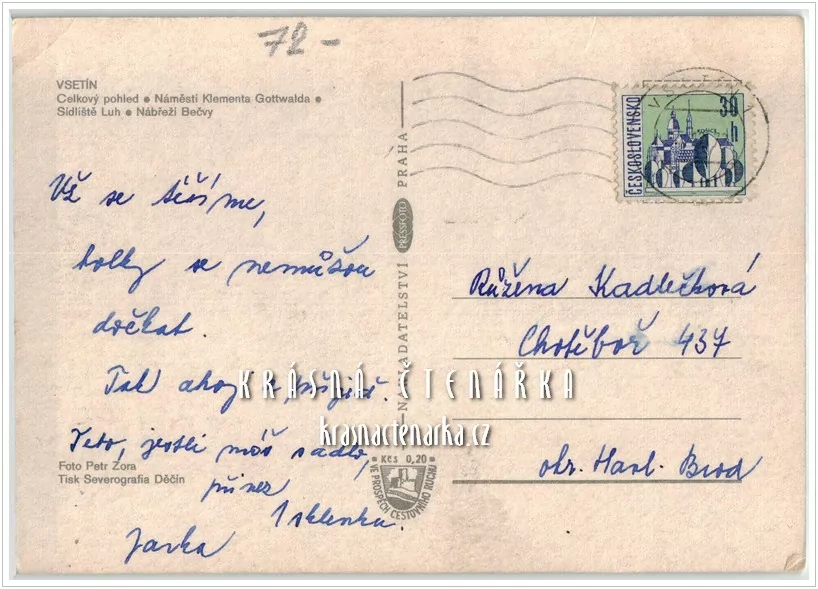 72 -
VSETÍN
Celkový pohled ● Náměstí Klementa Gottwalda ●
Sídliště Luh ● Nábřeží Bečvy
NAKLADATELSTVÍ PRESSFOTO PRAHA
ČESKOSLOVENSKO
30
h
Už se těšíme,
holky se nemůžou
dočkat.
Tak ahoj
Teto, jestli máš sadlo,
přivez
1 sklenku.
Jarka
Růžena Kadlečková
Chotěboř 437
okr. Havl. Brod
KRÁSNÁ ČTENÁŘKA
krasnactenarka.cz
Foto Petr Zora
Tisk Severografia Děčín
Kčs 0,20
VE PROSPĚCH CESTOVNÍHO RUCHU